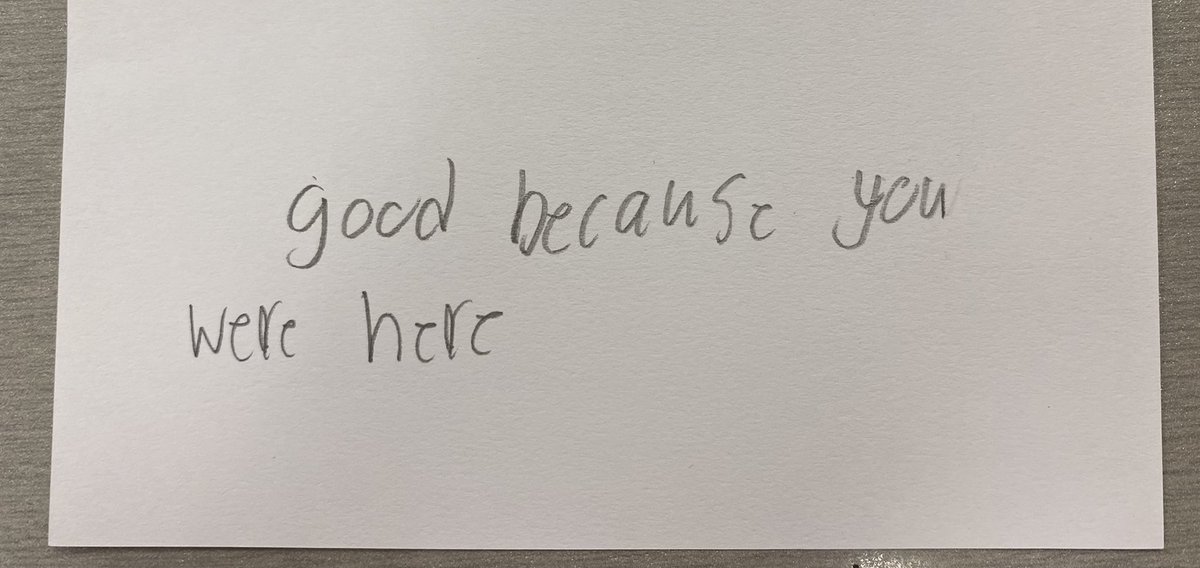 good because you
were here